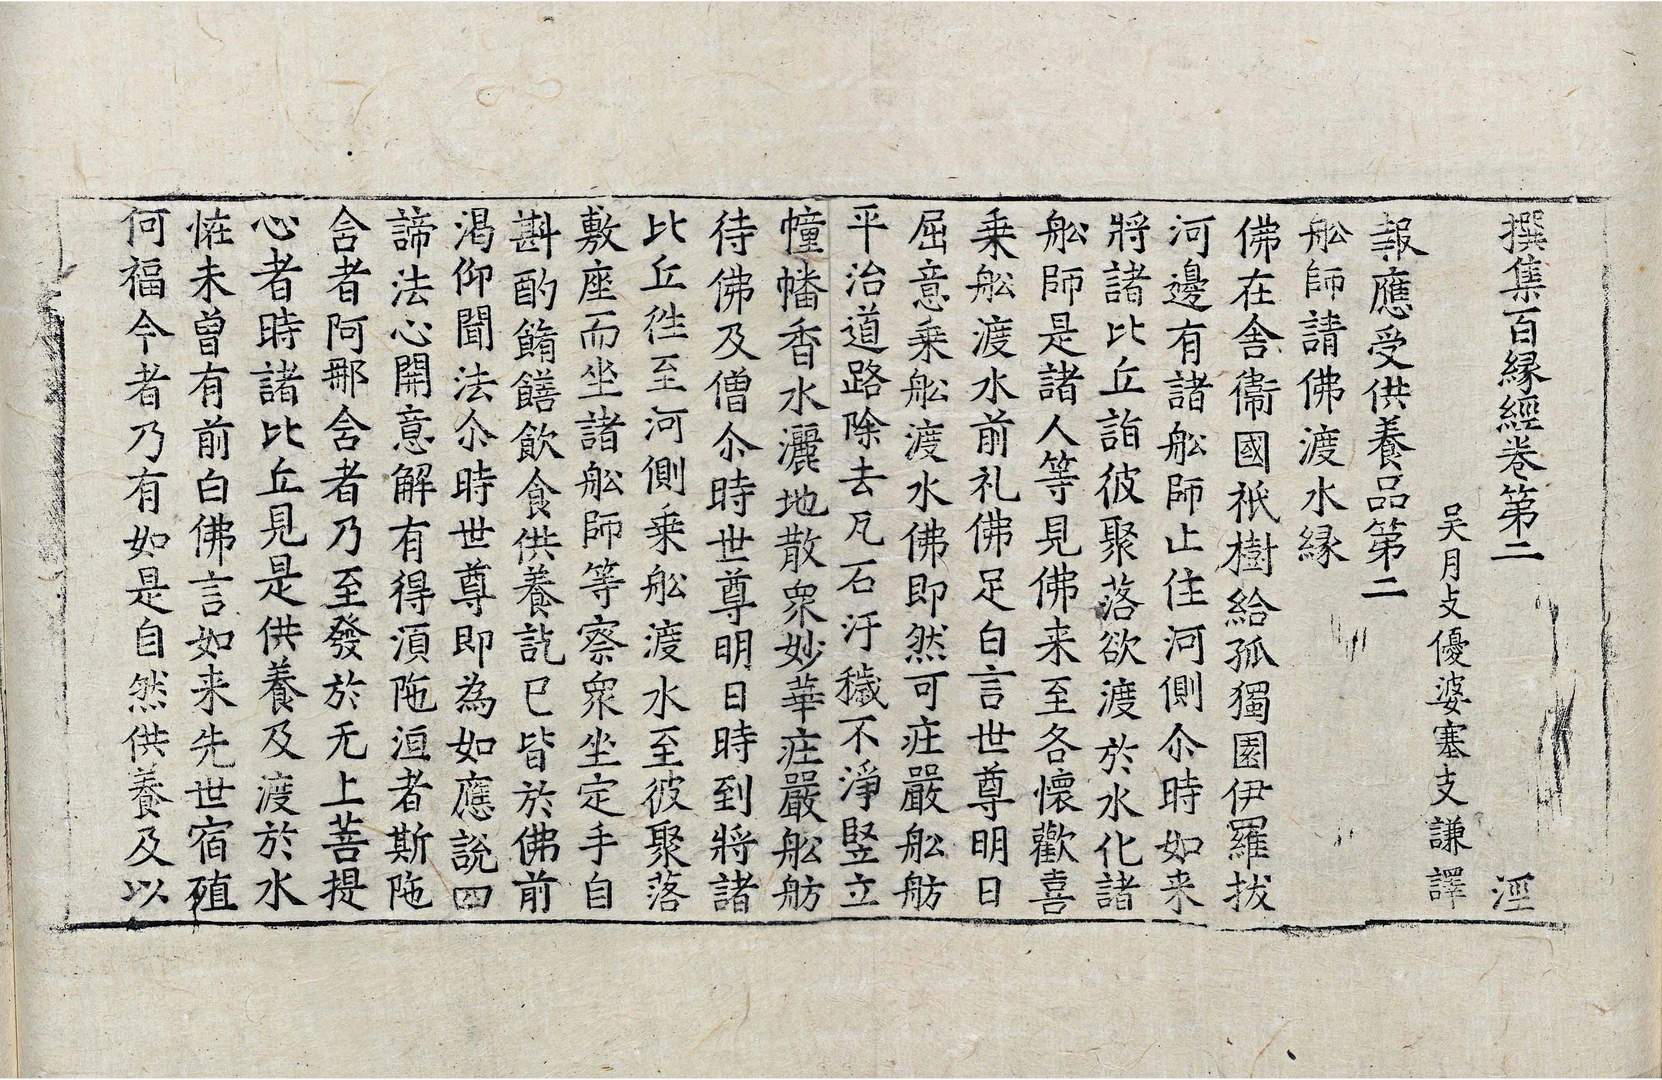 撰集百緣經卷第二 涇
吴月支優婆塞支謙譯
報應受供養品第二
舩師請佛渡水緣
佛在舍衛國祇樹給孤獨園伊羅拔
河邊有諸舩師止住河側尒時如来
將諸比丘詣彼聚落欲渡於水化諸
舩師是諸人等見佛来至各懷歡喜
乗舩渡水前礼佛足白言世尊明日
屈意乗舩渡水佛即然可庄嚴舩舫
平治道路除去瓦石汙穢不淨竪立
幢幡香水灑地散衆妙華庄嚴舩舫
待佛及僧尒時世尊明日時到將諸
比丘徃至河側乗舩渡水至彼聚落
敷座而坐諸舩師等察衆坐定手自
斟酌餚饍飲食供養訖已皆於佛前
渴仰聞法尒時世尊即為如應說四
諦法心開意解有得湏陁洹者斯陁
含者阿那含者乃至發於无上菩提
心者時諸比丘見是供養及渡於水
恠未曾有前白佛言如来先世宿殖
何福今者乃有如是自然供養及以